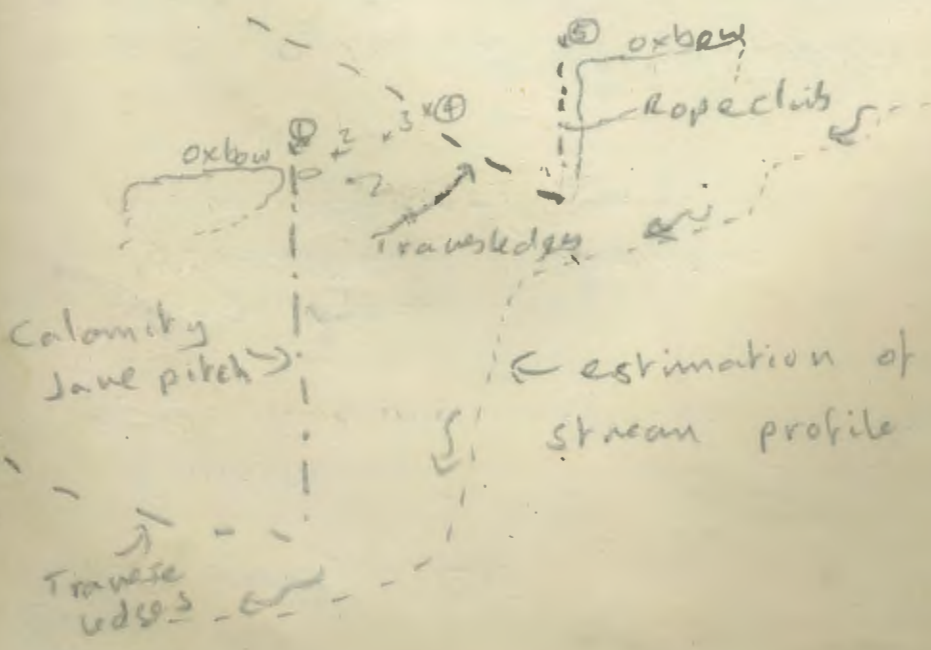 5
oxbow
Rope climb
4
3
2
1
oxbow
Traverse ledges
Calamity
Jane pitch
estimation of
stream profile
Traverse
ledges